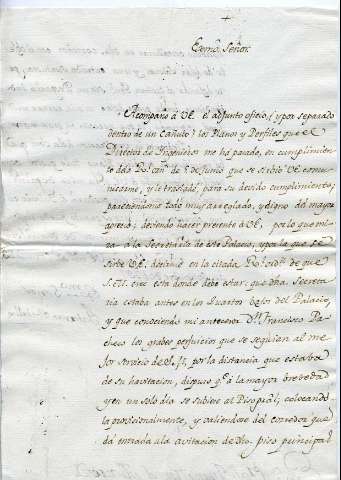 +
Exmô. Señor.
Acompaño á VE. el adjunto oficio, (y por separado
dentro de un Cañuto) los Planos y Perfiles que el
Director de Ingenieros me ha pasado, en cumplimien-
to de la Rl. orñ. de 5 de Junio que se sirbió VE comu-
nicarme, y le trasladé, para su devido cumplimiento;
pareciendome todo muy arreglado, y digno del mayor
aprecio; deviendo hacer presente á VE, por lo que mi-
ra á la Secretaría de este Palacio, y por la que se
sirbe VE, decirme en la citada Rl. ordñ. de que
S.M. cree está donde debe estar; que dha. Secreta-
ria estaba antes en los Quartos bajos del Palacio,
y que conociendo mi antecesor Dn. Francisco Pa-
checo los grabes perjuicios que se seguian al me-
jor servicio de S.M. por la distancia que estaba
de su havitacion, dispuso qe. á la mayor brebedad
y en un solo dia se subiese al Piso pral, colocando-
la provisionalmente, y valiendose del corredor que
dá entrada á la avitacion de dho. piso principal